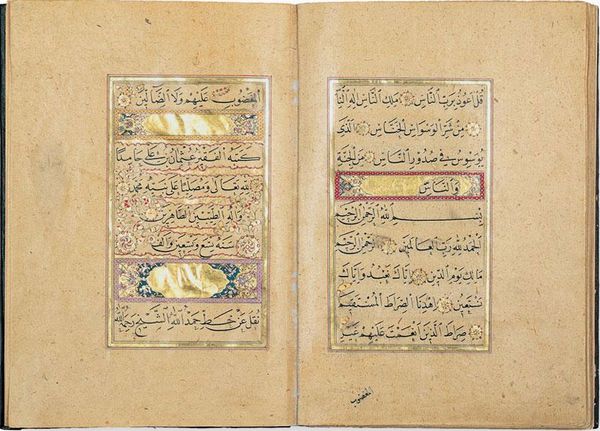 قُلْ اَعُوذُ بِرَبِّ النَّاسِ مَلِكِ النَّاسِ اِلٰهِ النَّاسِ
مِنْ شَرِّ الْوَسْوَاسِ الْخَنَّاسِ الَّذِى
يُوَسْوِسُ فِى صُدُورِ النَّاسِ مِنَ الْجِنَّةِ
وَالنَّاسِ
بِسْمِ اللّٰهِ الرَّحْمٰنِ الرَّحِيمِ
اَلْحَمْدُ لِلّٰهِ رَبِّ الْعَالَمِينَ الرَّحْمٰنِ الرَّحِيمِ
مَالِكِ يَوْمِ الدِّينِ اِيَّاكَ نَعْبُدُ وَاِيَّاكَ
نَسْتَعِينُ اِهْدِنَا الصِّرَاطَ الْمُسْتَقِيمَ
صِرَاطَ الَّذِينَ اَنْعَمْتَ عَلَيْهِمْ غَيْرِ
المغضوب
الْمَغْضُوبِ عَلَيْهِمْ وَلَا الضَّالِّينَ
كتبه الفقير عثمان بن على حامدا
لله تعالى ومصليا على نبيه محمد
واله الطيبين الطاهرين
سنه تسع وتسعين والف
نقل عن خط حمد الله الشيخ رحمه الله